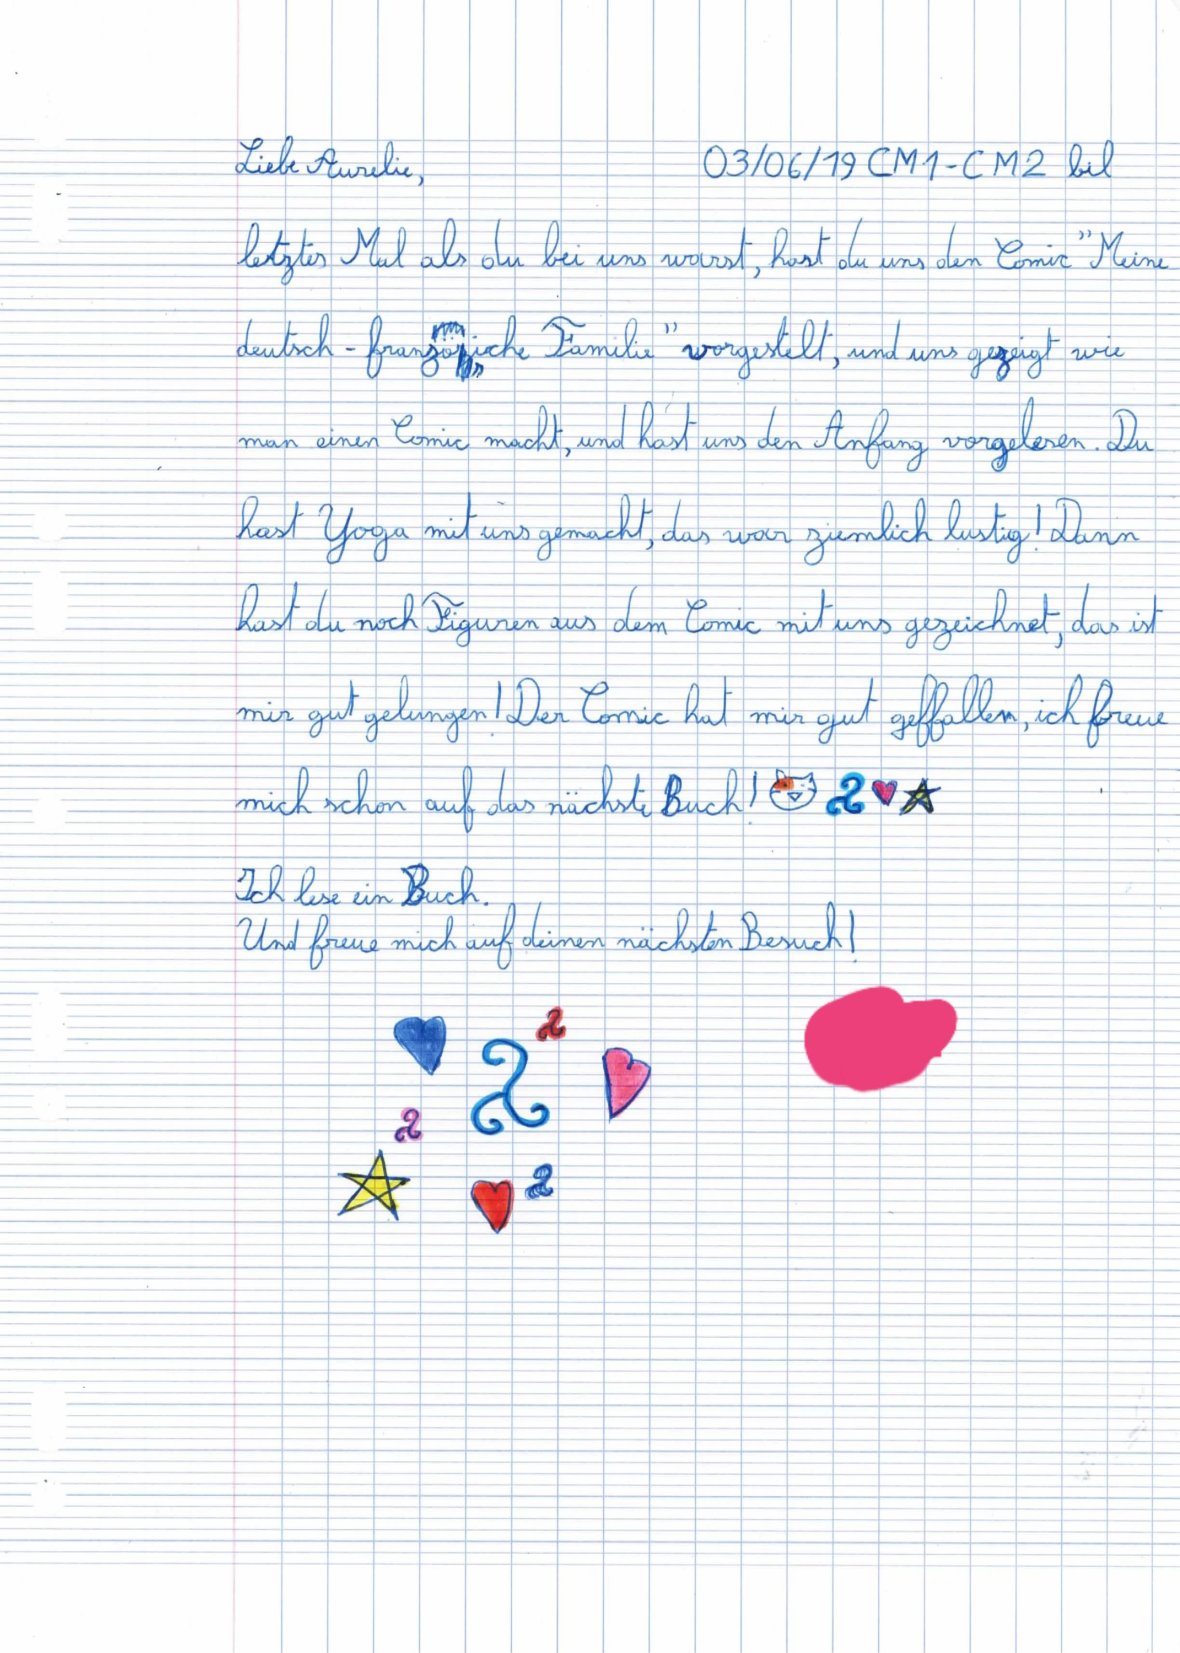 Liebe Aurelie, 03/06/19 CM1-CM2 bil
letztes Mal als du bei uns warst, hast du uns den Comic "Meine
deutsch-französiche Familie" vorgestelt, und uns gezeigt wie
man einen Comic macht, und hast uns den Anfang vorgelesen. Du
hast Yoga mit uns gemacht, das war ziemlich lustig! Dann
hast du noch Figuren aus dem Comic mit uns gezeichnet, das ist
mir gut gelungen! Der Comic hat mir gut geffallen, ich freue
mich schon auf das nächste Buch!
Ich lese ein Buch.
Und freue mich auf deinen nächsten Besuch!